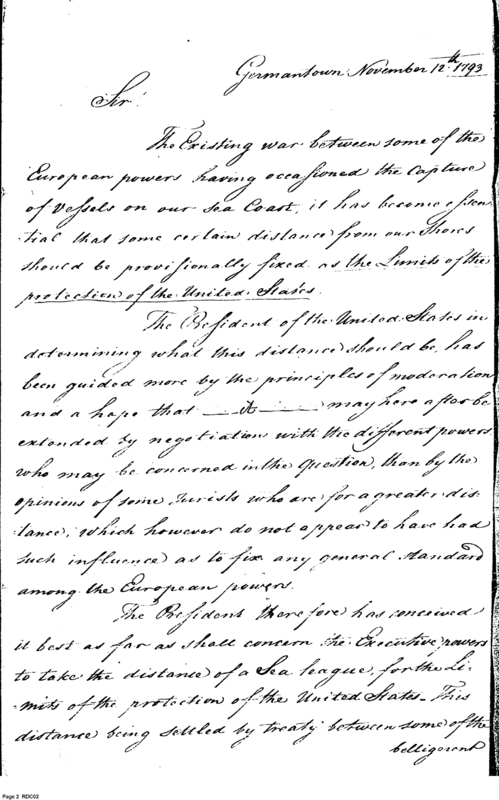 Germantown November 12th 1793
Sir!
The Existing war between some of the
European powers having occasioned the Capture
of Vessels on our Sea Coast, it has become essen-
tial that some certain distance from our Shores
should be provisionally fixed as the Limits of the
protection of the United States.
The President of the United States in
determining what this distance should be, has
been guided more by the principles of moderation
and a hope that — it — may here after be
extended by negotiation with the different powers
who may be concerned in the question, than by the
opinions of some Jurists who are for a greater dis-
tance, which however do not appear to have had
such influence as to fix any general Standard
among the European powers.
The President therefore has conceived
it best as far as shall concern the Executive powers
to take the distance of a Sea league, for the Li-
mits of the protection of the United States. This
distance being settled by treaty between some of the
belligerent
Page 2 RDC02